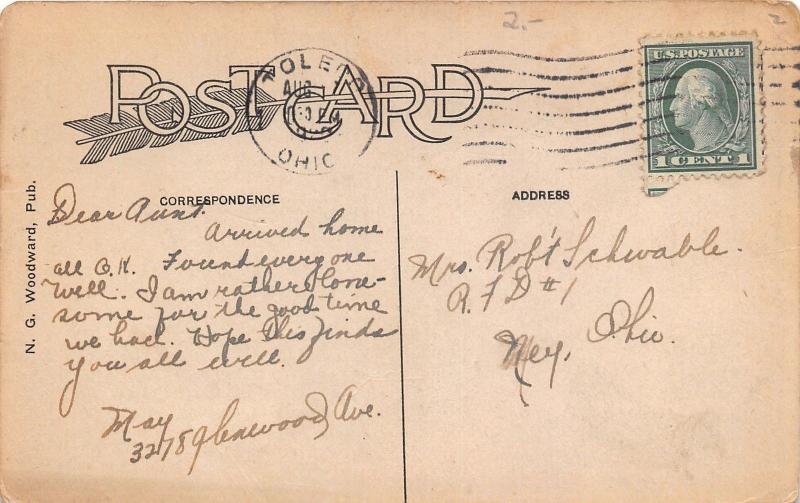 2.-
2
POST CARD
TOLEDO
AUG
OHIO
U.S. POSTAGE
1 CENT 1
N. G. Woodward, Pub.
CORRESPONDENCE
ADDRESS
Dear Aunt.
Arrived home
all O.K. Found everyone
well. I am rather lone-
some for the good time
we had. Hope this finds
you all well.
May
3278 Glenwood Ave.
Mrs. Rob't Schwable.
R. F D #1
Ney, Ohio.